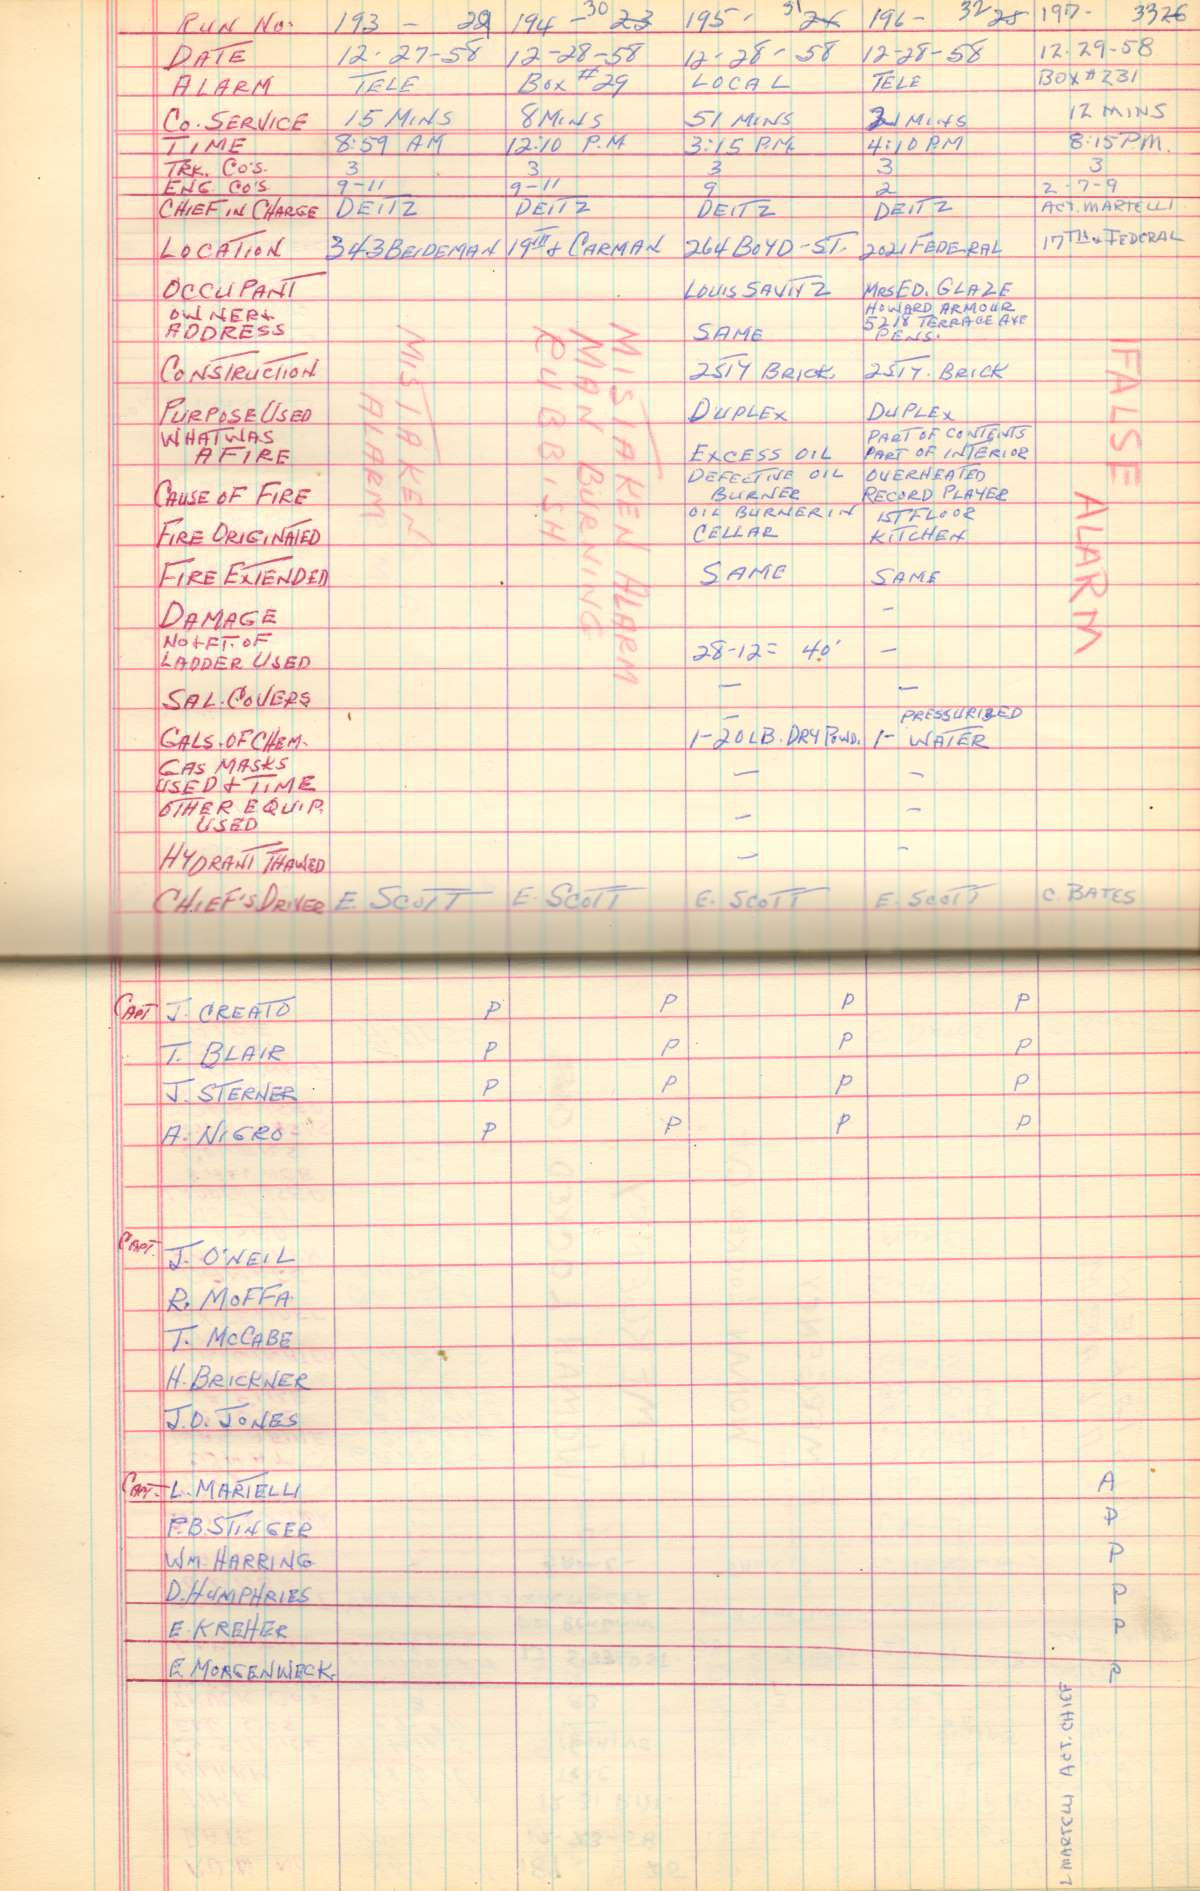 RUN NO. 193 - 29 194 - 30 23 195 - 31 24 196 - 32 25 197 - 33 26
DATE 12-27-58 12-28-58 12-28-58 12-28-58 12-29-58
ALARM TELE BOX #29 LOCAL TELE BOX #231
CO. SERVICE 15 MINS 8 MINS 51 MINS MINS 12 MINS
TIME 8:59 AM 12:10 P.M 3:15 P.M. 4:10 PM 8:15 P.M.
TRK. CO'S. 3 3 3 3 3
ENG. CO'S 9-11 9-11 9 2 2-7-9
CHIEF IN CHARGE DEITZ DEITZ DEITZ DEITZ ACT. MARTELLI
LOCATION 343 BEIDEMAN 19TH & CARMAN 264 BOYD-ST. 2021 FEDERAL 17TH & FEDERAL
OCCUPANT LOUIS SAVITZ MRS ED. GLAZE
OWNER & ADDRESS SAME HOWARD ARMOUR 5218 TERRACE AVE PENS.
CONSTRUCTION 2STY BRICK. 2STY. BRICK
PURPOSE USED DUPLEX DUPLEX
WHAT WAS AFIRE EXCESS OIL PART OF CONTENTS PART OF INTERIOR
CAUSE OF FIRE DEFECTIVE OIL BURNER OVERHEATED RECORD PLAYER
FIRE ORIGINATED OIL BURNER IN CELLAR 1ST FLOOR KITCHEN
FIRE EXTENDED SAME SAME
DAMAGE -
NO & FT. OF LADDER USED 28-12 = 40' -
SAL. COVERS - -
GALS. OF CHEM. - 1-20LB. DRY POWD. 1- PRESSURIZED WATER
GAS MASKS USED & TIME - -
OTHER EQUIP. USED - -
HYDRANT THAWED - -
CHIEF'S DRIVER E. SCOTT E. SCOTT E. SCOTT E. SCOTT C. BATES
MISTAKEN ALARM
MISTAKEN ALARM
MAN BURNING
RUBBISH
FALSE ALARM
CAPT J. CREATO P P P P
T. BLAIR P P P P
J. STERNER P P P P
A. NIGRO P P P P
CAPT. J. O'NEIL
R. MOFFA
T. McCABE
H. BRICKNER
J.D. JONES
CAPT. L. MARTELLI A
F.B. STINGER P
WM. HARRING P
D. HUMPHRIES P
E. KREHER P
E. MORGENWECK. P
L MARTELLI ACT. CHIEF